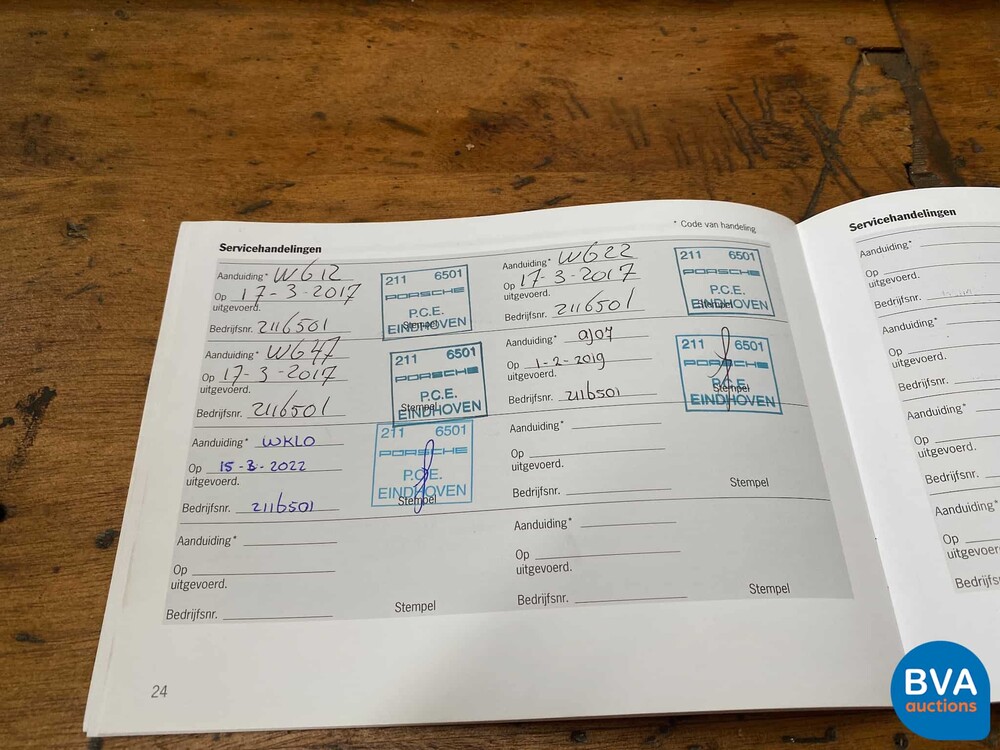 Servicehandelingen
* Code van handeling
Aanduiding* WG12
Op 17-3-2017
uitgevoerd.
Bedrijfsnr. 2116501
211 6501
PORSCHE
P.C.E.
EINDHOVEN
Stempel
Aanduiding* WG22
Op 17-3-2017
uitgevoerd.
Bedrijfsnr. 2116501
211 6501
PORSCHE
P.C.E.
EINDHOVEN
Stempel
Aanduiding* WG47
Op 17-3-2017
uitgevoerd.
Bedrijfsnr. 2116501
211 6501
PORSCHE
P.C.E.
EINDHOVEN
Stempel
Aanduiding*
Op 1-2-2019
uitgevoerd.
Bedrijfsnr. 2116501
211 6501
PORSCHE
P.C.E.
EINDHOVEN
Stempel
Aanduiding* WKLO
Op 15-3-2022
uitgevoerd.
Bedrijfsnr. 2116501
211 6501
PORSCHE
P.C.E.
EINDHOVEN
Stempel
Aanduiding*
Op
uitgevoerd.
Bedrijfsnr.
Stempel
Aanduiding*
Op
uitgevoerd.
Bedrijfsnr.
Stempel
Aanduiding*
Op
uitgevoerd.
Bedrijfsnr.
Stempel
24
Servicehandelingen
Aanduiding*
Op
uitgevoerd.
Bedrijfsnr.
Aanduiding*
Op
uitgevoerd.
Bedrijfsnr.
Aanduiding*
Op
uitgevoerd.
Bedrijfsnr.
Aanduiding*
Op
uitgevoer
Bedrijfs
BVA
auctions